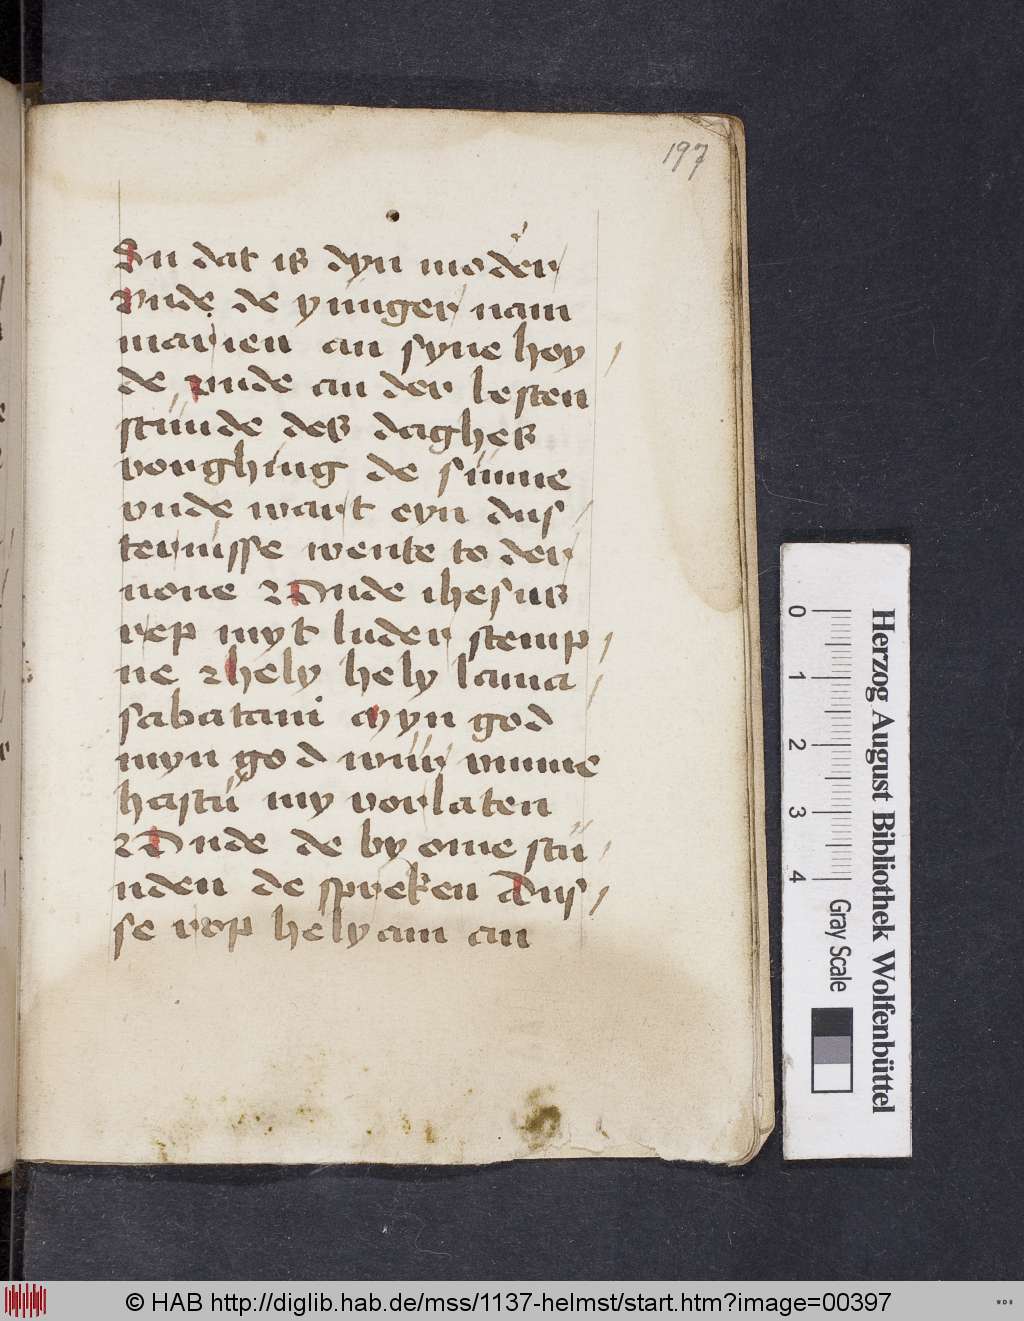 197
Su dat is dyn moder
vnde de yunger nam
marien an syne hoy
de vnde an der lesten
stunde des daghes
vorghing de sunne
vnde wart eyn dus
ternisse wente to der
none Vnde ihesus
rep myt luder stemp
ne hely hely lama
sabatani Myn god
myn god wur vmme
hastu my vorlaten
Vnde de by ome stu
nden de spreken Dus
se rop helyam an
0 1 2 3 4
Herzog August Bibliothek Wolfenbüttel
Gray Scale
© HAB http://diglib.hab.de/mss/1137-helmst/start.htm?image=00397